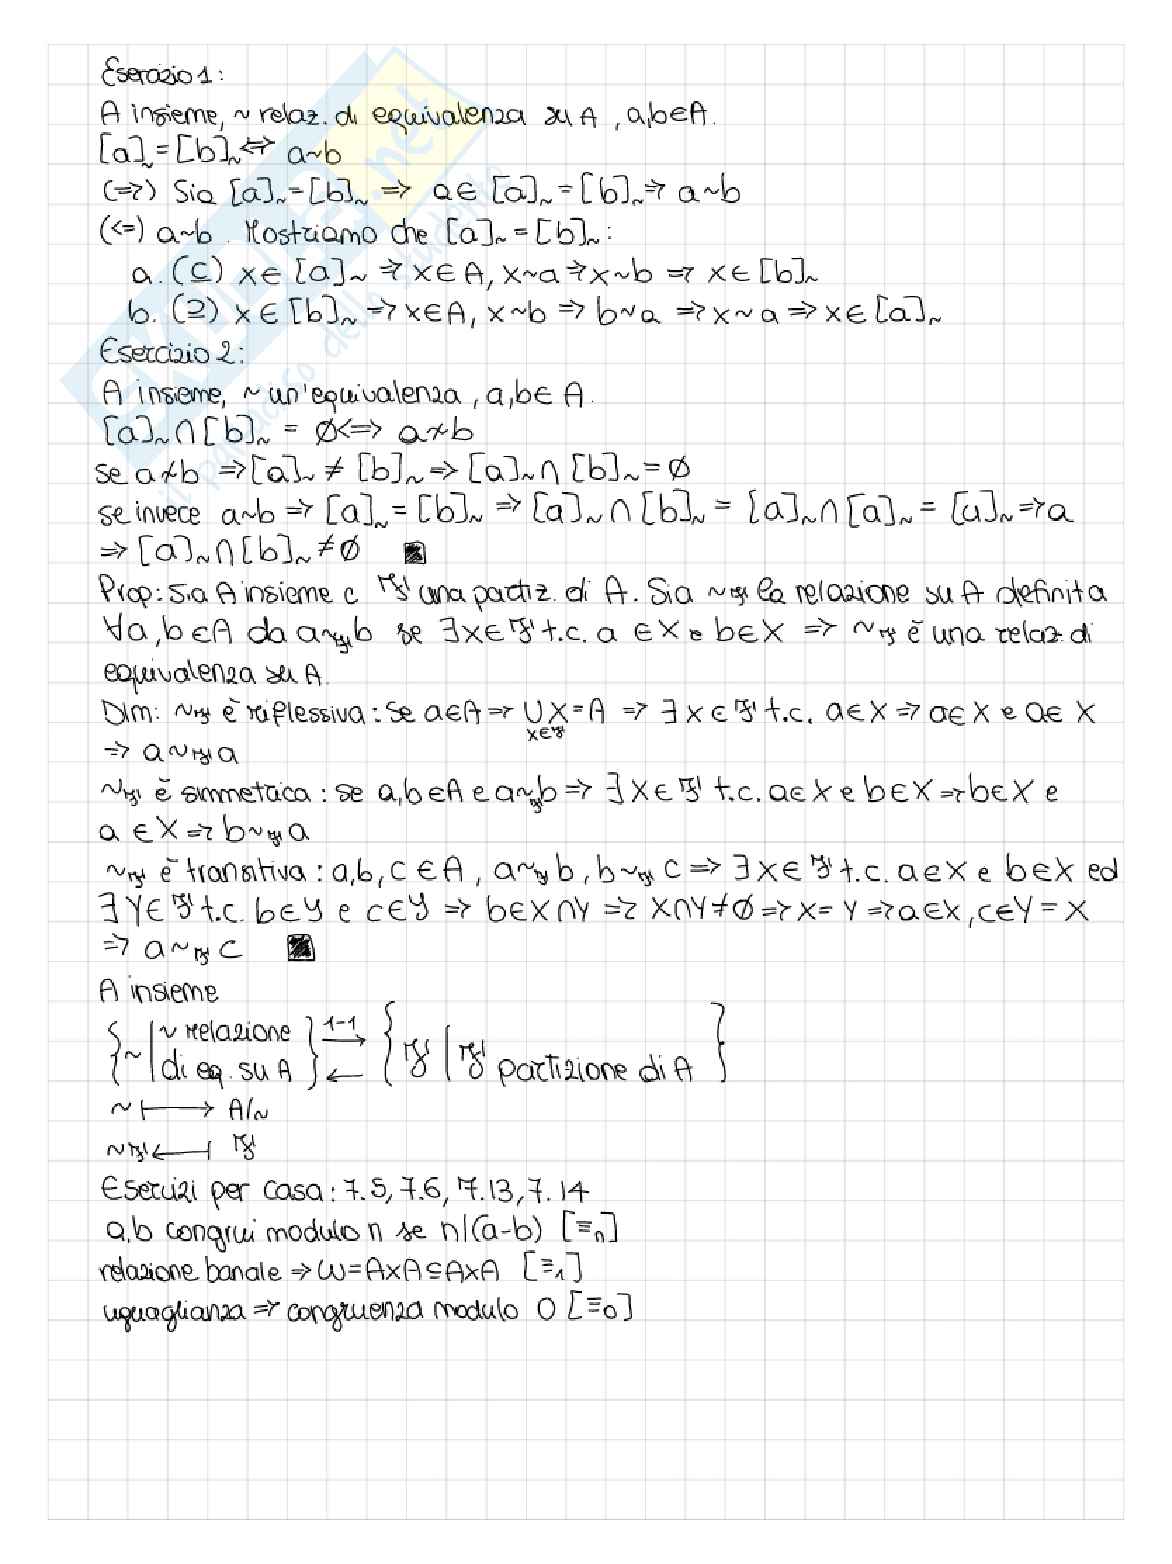 Esercizio 1:
A insieme, ~ relaz. di equivalenza su A, a,b∈A.
[a]~ = [b]~ ⇔ a~b
(⇒) Sia [a]~ = [b]~ ⇒ a∈[a]~ = [b]~ ⇒ a~b
(⇐) a~b. Mostriamo che [a]~ = [b]~:
a. (⊆) x∈[a]~ ⇒ x∈A, x~a ⇒ x~b ⇒ x∈[b]~
b. (⊇) x∈[b]~ ⇒ x∈A, x~b ⇒ b~a ⇒ x~a ⇒ x∈[a]~
Esercizio 2:
A insieme, ~ un'equivalenza, a,b∈A.
[a]~ ∩ [b]~ = ∅ ⇔ a≁b
se a≁b ⇒ [a]~ ≠ [b]~ ⇒ [a]~ ∩ [b]~ = ∅
se invece a~b ⇒ [a]~ = [b]~ ⇒ [a]~ ∩ [b]~ = [a]~ ∩ [a]~ = [a]~ ⇒ a
⇒ [a]~ ∩ [b]~ ≠ ∅ ■
Prop: Sia A insieme e ℱ una partiz. di A. Sia ~ℱ la relazione su A definita
∀a,b∈A da a~ℱ b se ∃X∈ℱ t.c. a∈X e b∈X ⇒ ~ℱ è una relaz. di
equivalenza su A.
Dim: ~ℱ è riflessiva: se a∈A ⇒ ∪X = A ⇒ ∃X∈ℱ t.c. a∈X ⇒ a∈X e a∈X
X∈ℱ
⇒ a~ℱ a
~ℱ è simmetrica: se a,b∈A e a~ℱ b ⇒ ∃X∈ℱ t.c. a∈X e b∈X ⇒ b∈X e
a∈X ⇒ b~ℱ a
~ℱ è transitiva: a,b,c∈A, a~ℱ b, b~ℱ c ⇒ ∃X∈ℱ t.c. a∈X e b∈X ed
∃Y∈ℱ t.c. b∈Y e c∈Y ⇒ b∈X∩Y ⇒ X∩Y≠∅ ⇒ X=Y ⇒ a∈X, c∈Y=X
⇒ a~ℱ c ■
A insieme
{~ | ~ relazione di eq. su A} 1-1 ⇄ {ℱ | ℱ partizione di A}
~ ⟼ A/~
~ℱ ⟻ ℱ
Esercizi per casa: 7.5, 7.6, 7.13, 7.14
a,b congrui modulo n se n|(a-b) [≡n]
relazione banale ⇒ ω=A×A⊆A×A [≡1]
uguaglianza ⇒ congruenza modulo 0 [≡0]